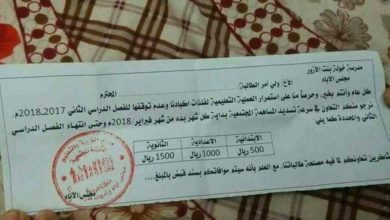 مدرسة خولة بنت الأزور
مجلس الآباء
الأخ/ ولي أمر الطالبة/ المحترم
كل عام وانتم بخير، وحرصاً منا على استمرار العملية التعليمية لفلذات اكبادنا وعدم توقفها للفصل الدراسي الثاني 2017ـ2018م
نرجو منكم التعاون في سرعة تسديد المساهمة المجتمعية بداية كل شهر بدء من شهر فبراير/2018م وحتى انتهاء الفصل الدراسي
الثاني والمحددة كما يلي
الابتدائية الاعدادية الثانوية
500 ريال 1000 ريال 1500 ريال
شاكرين تعاونكم لما فيه مصلحة طالباتنا، مع العلم بأنه سيتم موافاتكم بسند قبض بالمبلغ